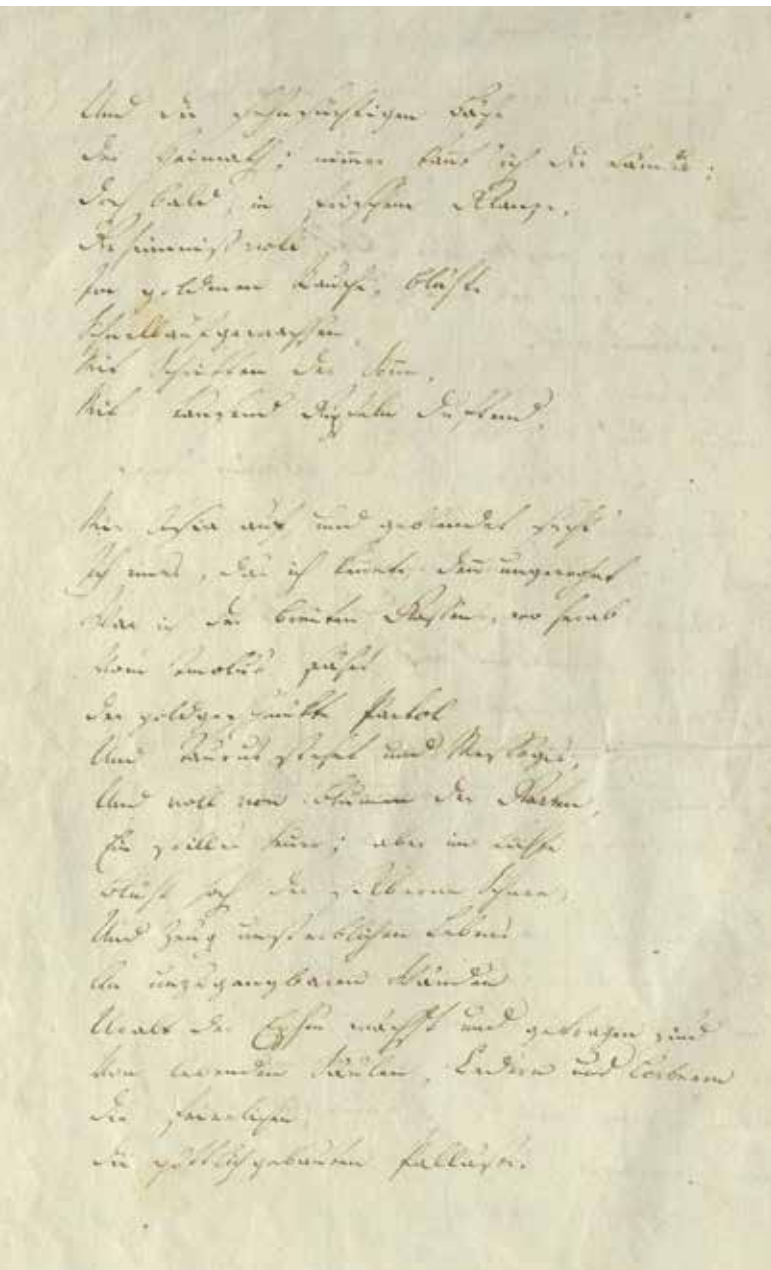 Und die sehnsüchtigen Bäche
Der Heimath; nimmer kannt' ich die Länder;
Doch bald, in frischem Glanze,
Geheimnißvoll
Im goldenen Rauche, blühte
Schnellaufgewachsen,
Mit Schritten der Sonne,
Mit tausend Gipfeln duftend,
Mir Asia auf und geblendet sucht'
Ich eines, das ich kennete, denn ungewohnt
War ich der breiten Gassen, wo herab
Vom Tmolus fährt
Der goldgeschmükte Pactol
Und Taurus stehet und Messogis,
Und voll von Blumen der Garten,
Ein stilles Feuer; aber im Lichte
Blüht hoch der silberne Schnee;
Und Zeug unsterblichen Lebens
An unzugangbaren Wänden
Uralt der Epheu wächst und getragen sind
Von lebenden Säulen, Cedern und Lorbeern
Die feierlichen,
Die göttlichgebauten Palläste.